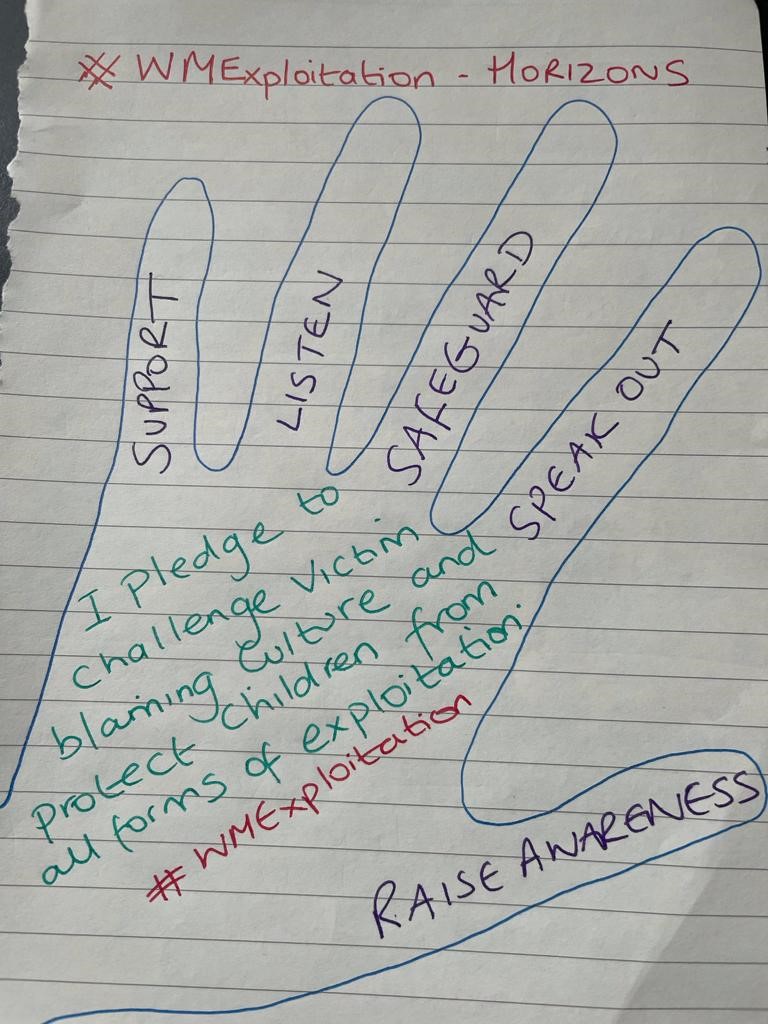 # WMExploitation - HORIZONS
SUPPORT
LISTEN
SAFEGUARD
SPEAK OUT
I pledge to
challenge victim
blaming culture and
protect children from
all forms of exploitation.
# WMExploitation
RAISE AWARENESS